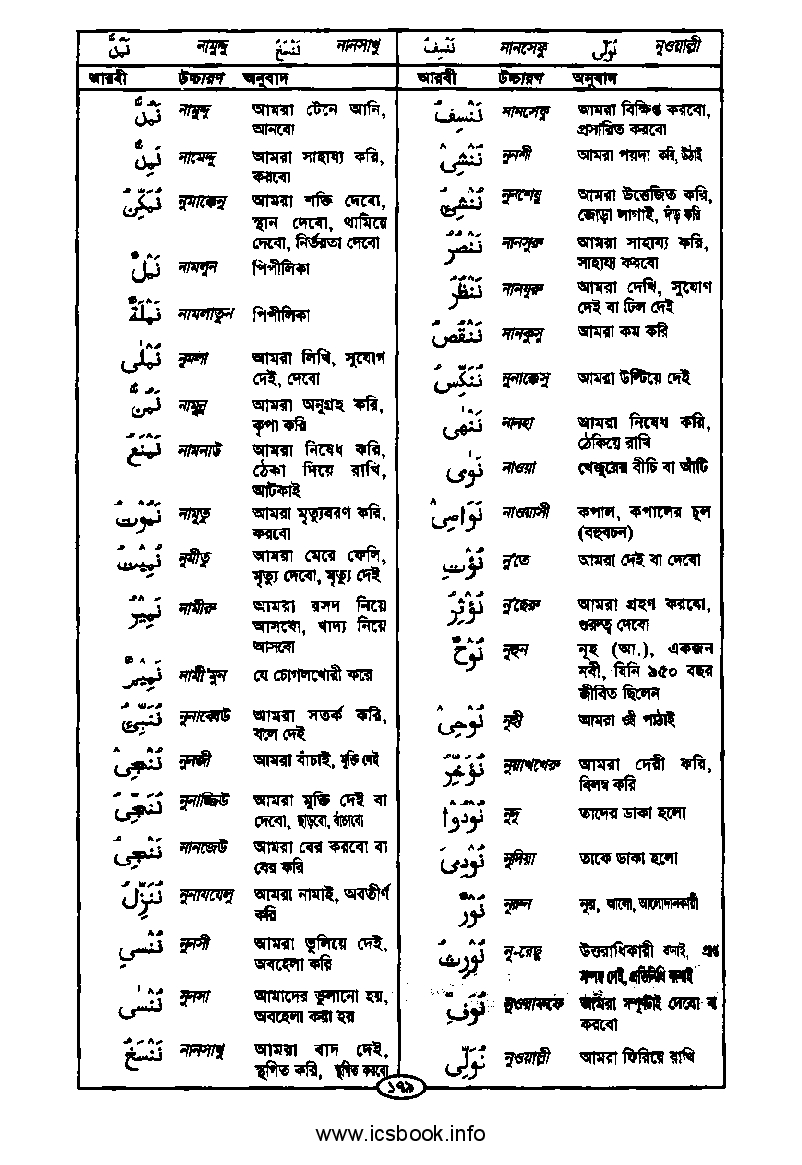 نَمُدُّ নামুদ্দু نَنْسَخُ নানসাখু
আরবী উচ্চারণ অনুবাদ
نَمُدُّ নামুদ্দু আমরা টেনে আনি,
আনবো
نُمِدُّ নামেদ্দু আমরা সাহায্য করি,
করবো
نُمَكِّنُ নুমাক্কেনু আমরা শক্তি দেবো,
স্থান দেবো, থামিয়ে
দেবো, নির্ভরতা দেবো
نَمْلٌ নামলুন পিপীলিকা
نَمْلَةٌ নামলাতুন পিপীলিকা
نُمْلٰى নুমলা আমরা লিখি, সুযোগ
দেই, দেবো
نَمُنُّ নামুন্নু আমরা অনুগ্রহ করি,
কৃপা করি
نَمْنَعُ নামনাউ আমরা নিষেধ করি,
ঠেকা দিয়ে রাখি,
আটকাই
نَمُوْتُ নামুতু আমরা মৃত্যুবরণ করি,
করবো
نُمِيْتُ নুমীতু আমরা মেরে ফেলি,
মৃত্যু দেবো, মৃত্যু দেই
نَمِيْرُ নামীরু আমরা রসদ নিয়ে
আসবো, খাদ্য নিয়ে
আসবো
نَمِيْمٌ নামী'মুন যে চোগলখোরী করে
نُنَبِّئُ নুনাব্বেউ আমরা সতর্ক করি,
বলে দেই
نُنْجِىْ নুনজী আমরা বাঁচাই, মুক্তি দেই
نُنَجِّىْ নুনাজ্জিউ আমরা মুক্তি দেই বা
দেবো, ছাড়বো, বাঁচাবো
نُنْجِىْ নানজেউ আমরা বের করবো বা
বের করি
نُنَزِّلُ নুনাযযেলু আমরা নামাই, অবতীর্ণ
করি
نُنْسِىْ নুনসী আমরা ভুলিয়ে দেই,
অবহেলা করি
نُنْسٰى নুনসা আমাদের ভুলানো হয়,
অবহেলা করা হয়
نَنْسَخُ নানসাখু আমরা বাদ দেই,
স্থগিত করি, স্থগিত করবো
نَنْسِفُ নানসেফু نُوَلِّى নুওয়াল্লী
আরবী উচ্চারণ অনুবাদ
نَنْسِفُ নানসেফু আমরা বিক্ষিপ্ত করবো,
প্রসারিত করবো
نُنْشِىْ নুনশী আমরা পয়দা করি, উঠাই
نُنْشِزُ নুনশেযু আমরা উত্তেজিত করি,
জোড়া লাগাই, দাঁড় করি
نَنْصُرُ নানসুরু আমরা সাহায্য করি,
সাহায্য করবো
نَنْظُرُ নানযুরু আমরা দেখি, সুযোগ
দেই বা ঢিল দেই
نَنْقُصُ নানকুসু আমরা কম করি
نُنَكِّسُ নুনাক্কেসু আমরা উল্টিয়ে দেই
نَنْهٰى নানহা আমরা নিষেধ করি,
ঠেকিয়ে রাখি
نَوٰى নাওয়া খেজুরের বীচি বা আঁটি
نَوَاصِىْ নাওয়াসী কপাল, কপালের চুল
(বহুবচন)
نُؤْتِ নু'তে আমরা দেই বা দেবো
نُؤْثِرُ নু'ছেরু আমরা গ্রহণ করবো,
গুরুত্ব দেবো
نُوْحٌ নূহুন নূহ (আ.), একজন
নবী, যিনি ৯৫০ বছর
জীবিত ছিলেন
نُوْحِىْ নূহী আমরা ওহী পাঠাই
نُؤَخِّرُ নুয়াখখেরু আমরা দেরী করি,
বিলম্ব করি
نُوْدُوْا নূদু তাদের ডাকা হলো
نُوْدِىَ নূদিয়া তাকে ডাকা হলো
نُوْرٌ নূরুন নূর, আলো, আলোদানকারী
نُوْرِثُ নূ-রেছু উত্তরাধিকারী বানাই, প্রাপ্ত
সম্পদ দেই, প্রতিনিধি বানাই
نُوَفِّ নুওয়াফফে আমরা সম্পূর্ণটাই দেবো বা
করবো
نُوَلِّىْ নুওয়াল্লী আমরা ফিরিয়ে রাখি
১৭৯
www.icsbook.info